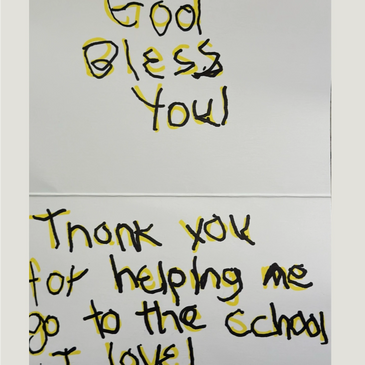 God
Bless
You!
Thank you
for helping me
go to the school
I love!